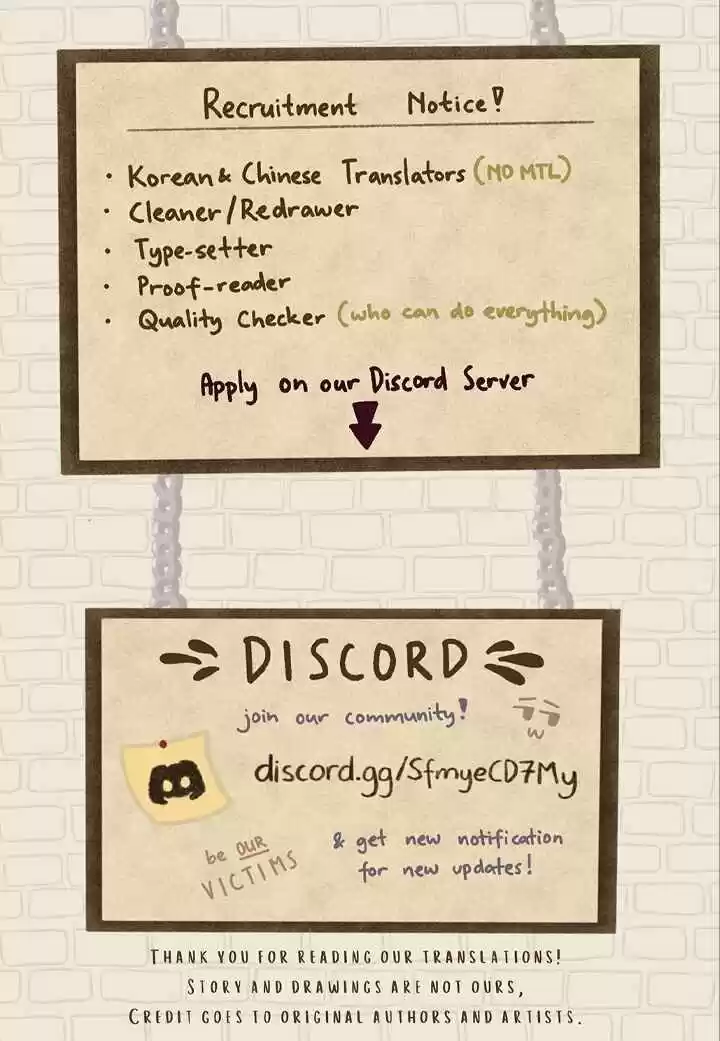 Recruitment Notice!
• Korean & Chinese Translators (NO MTL)
• Cleaner/Redrawer
• Type-setter
• Proof-reader
• Quality Checker (who can do everything)
Apply on our Discord Server
DISCORD
join our community!
w
discord.gg/SfmyeCD7My
& get new notification
for new updates!
be OUR
VICTIMS
THANK YOU FOR READING OUR TRANSLATIONS!
STORY AND DRAWINGS ARE NOT OURS,
CREDIT GOES TO ORIGINAL AUTHORS AND ARTISTS.